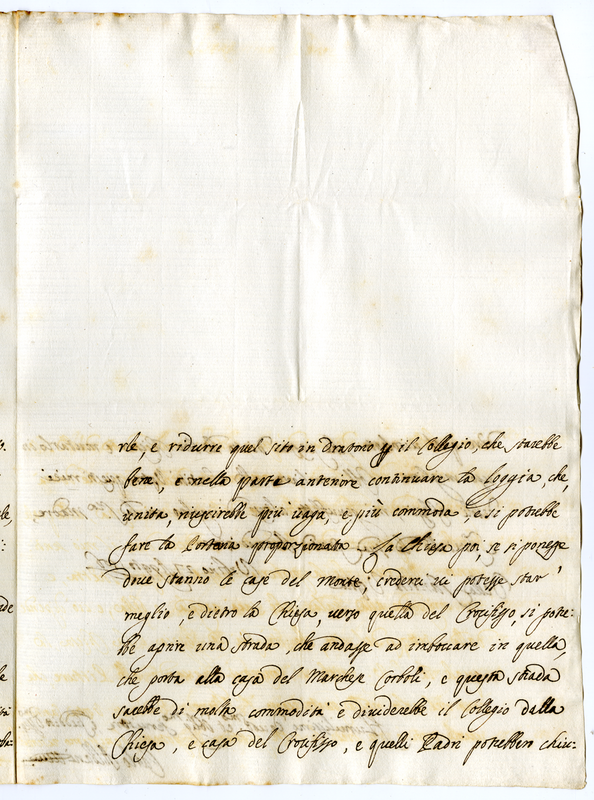 rle, e ridurre quel sito in Oratorio p il Collegio, che starebbe
bene, e nella parte anteriore continuare la loggia, che,
unita, riuscirebbe più vaga, e più commoda, e si potrebbe
fare la Porteria proporzionata. La Chiesa poi, se si ponesse
dove stanno le case del Monte, crederei vi potesse star
meglio, e dietro la Chiesa, verso quella del Crocifisso, si potre:
be aprire una strada, che andasse ad imboccare in quella,
che porta alla casa del Marchese Corboli, e questa strada
sarebbe di molta commodità e dividerebbe il Collegio dalla
Chiesa, e casa del Crocifisso, e quelli Padri potrebbero chiu: